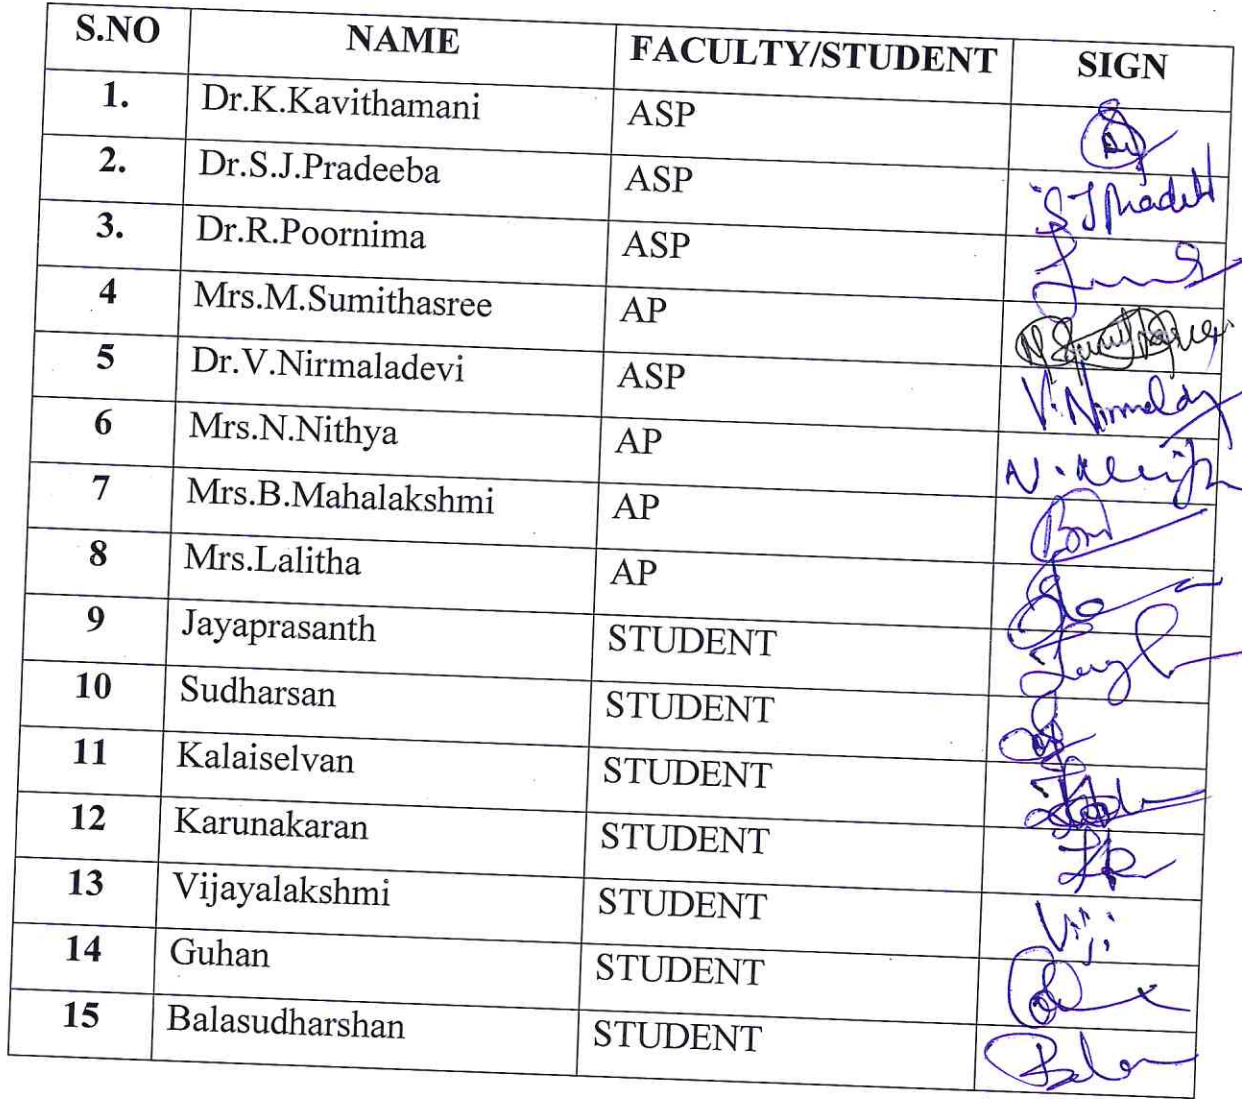 S.NO NAME FACULTY/STUDENT SIGN
1. Dr.K.Kavithamani ASP
2. Dr.S.J.Pradeeba ASP
3. Dr.R.Poornima ASP
4 Mrs.M.Sumithasree AP
5 Dr.V.Nirmaladevi ASP
6 Mrs.N.Nithya AP
7 Mrs.B.Mahalakshmi AP
8 Mrs.Lalitha AP
9 Jayaprasanth STUDENT
10 Sudharsan STUDENT
11 Kalaiselvan STUDENT
12 Karunakaran STUDENT
13 Vijayalakshmi STUDENT Viji
14 Guhan STUDENT
15 Balasudharshan STUDENT